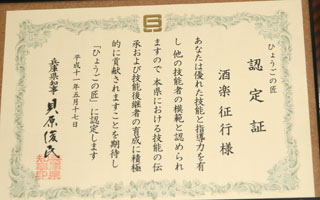 ひょうごの匠
認定証
酒楽征行様
あなたは優れた技能と指導力を有
し他の技能者の模範と認められ
ますので本県における技能の伝
承および技能後継者の育成に積極
的に貢献されますことを期待し
「ひょうごの匠」に認定します
平成十一年五月十七日
兵庫県知事 貝原俊民